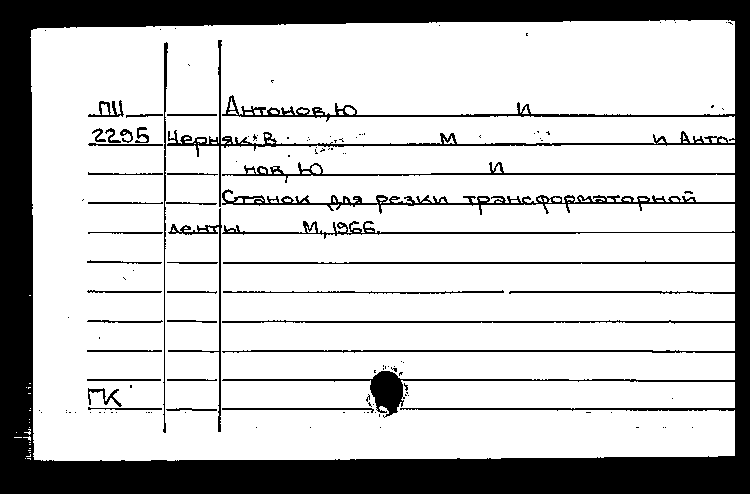 ПII Антонов, Ю И
2295 Черняк, В М и Анто-
нов, Ю И
Станок для резки трансформаторной
ленты. М., 1966.
ГК